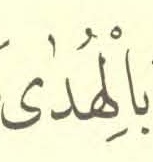 بِالْهُدٰى